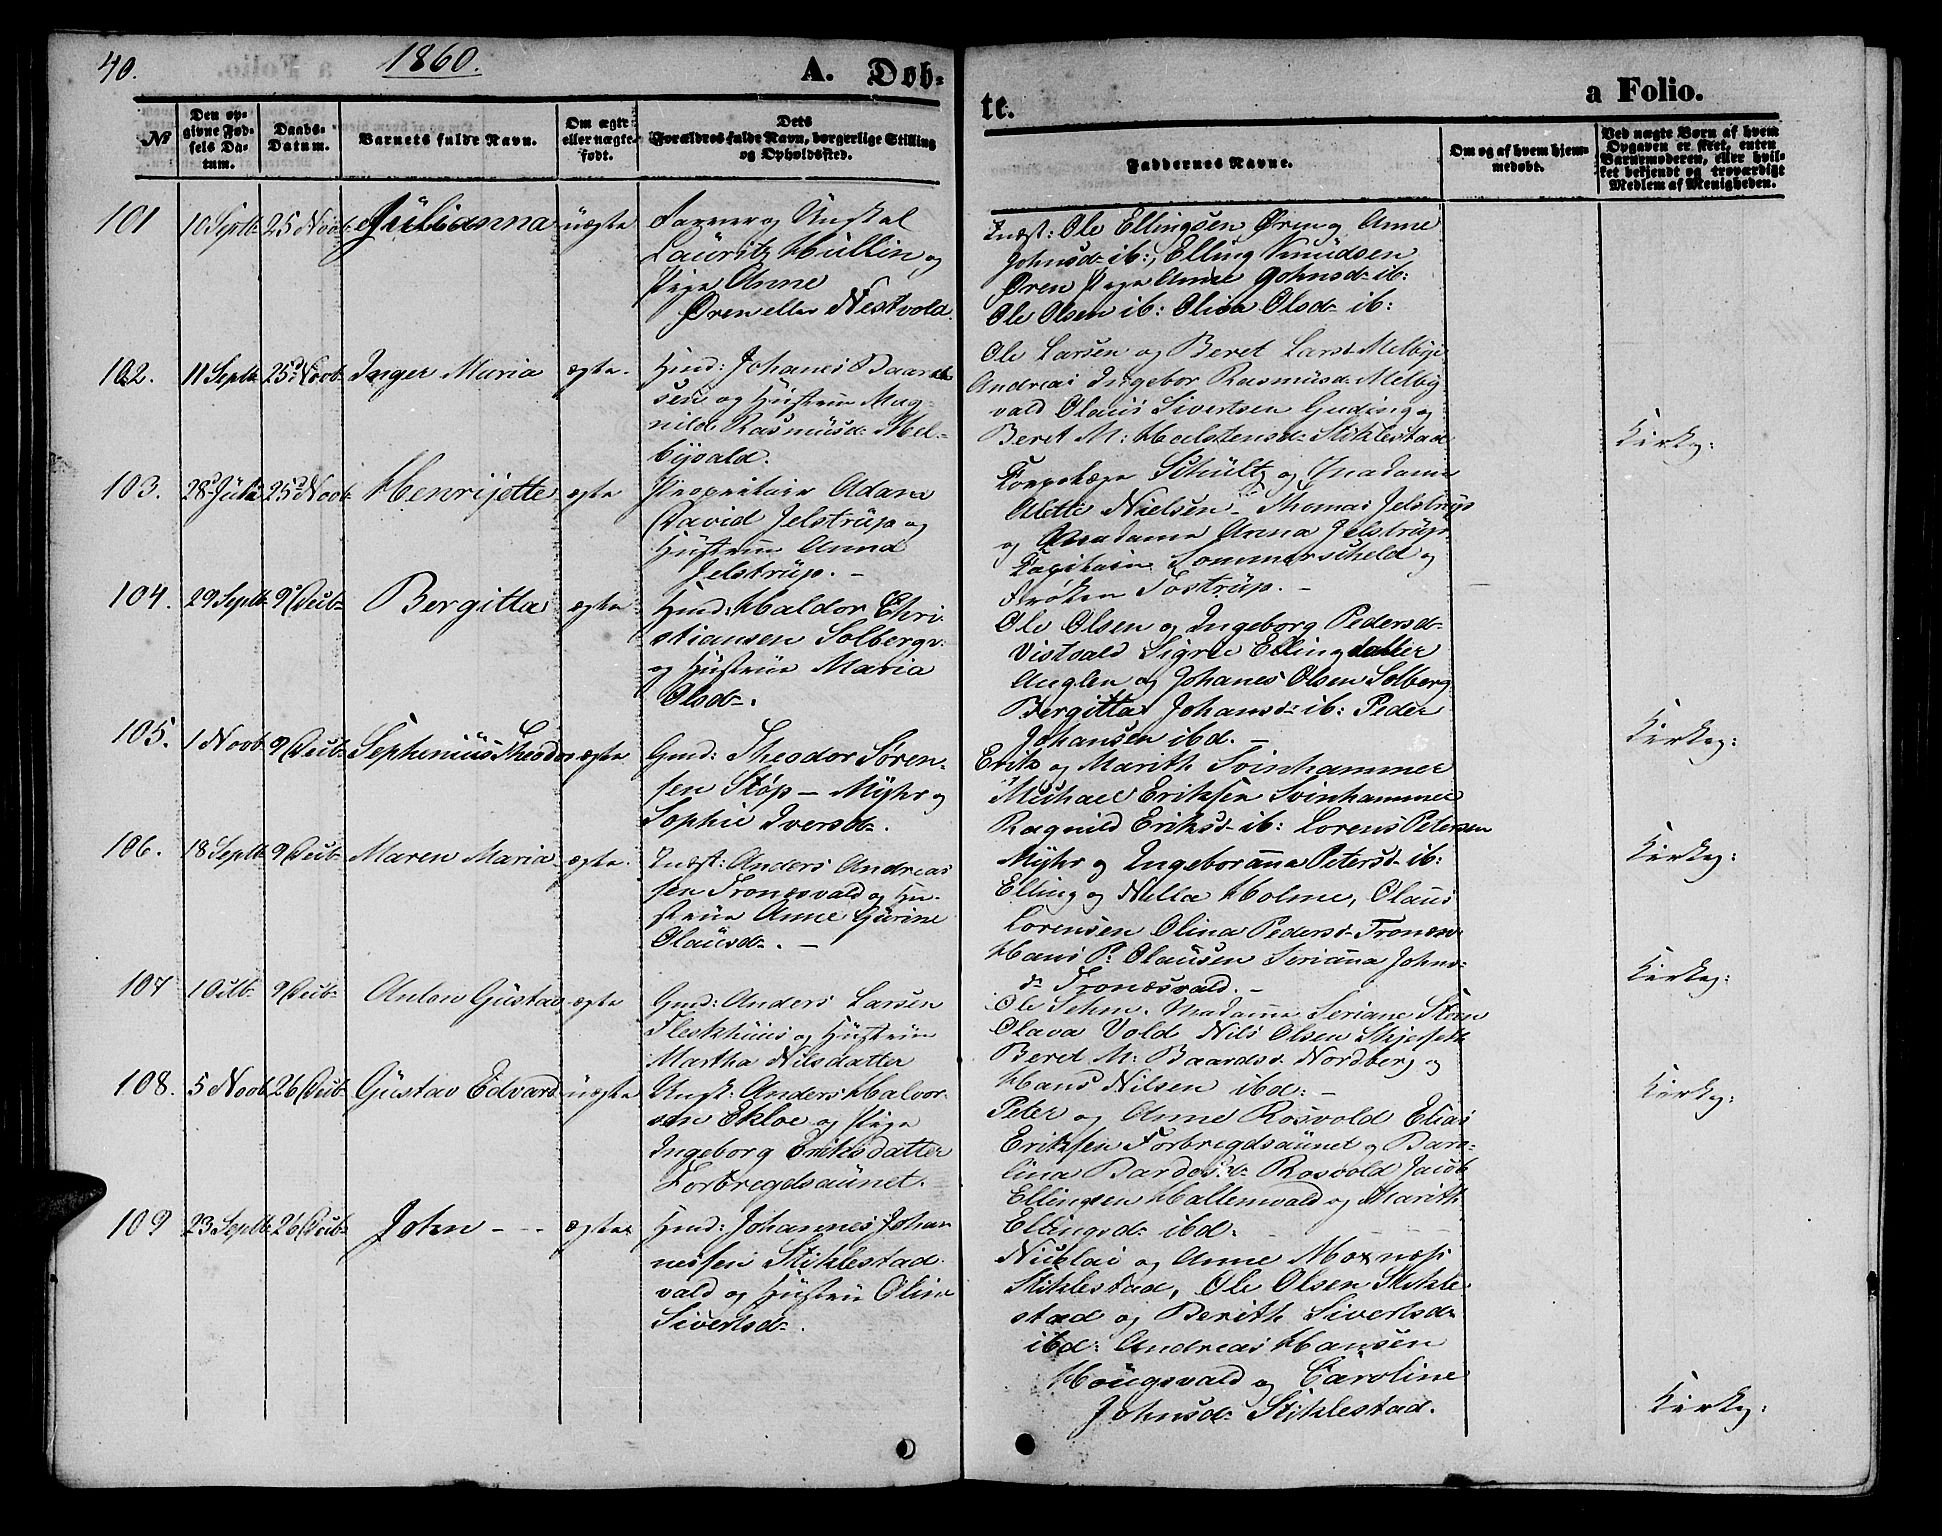 40.
1860.
A. Døb-
te.
a Folio.
№
Den op-
givne Fød-
sels Da-
tum.
Daabs-
Datum.
Barnets fulde Navn.
Om ægte
eller uægte
født.
Dets
Forældres fulde Navn, borgerlige Stilling
og Opholdssted.
Faddernes Navne.
Om og af hvem hjem-
medøbt.
Ved uægte Børn af hvem
Opgaven er skeet, enten
Barnemoderen, eller hvil-
ket bekjendt og troværdigt
Medlem af Menigheden.
101
10 Septb
25 Novb
Julianna
uægte
og Ungkal
Lauritz Hüllin og
Pige Anne
Øren eller Nestvold.
Indst: Ole Ellingsen Øren og Anne
Johnsd- ib:, Elling Knudsen
Øren Pige Anne Johnsd- ib:
Ole Olsen ib: Olina Olsd- ib:
102.
11 Septb
25d Novb
Inger Maria
ægte.
Hmd: Johanes Baard
sen og Hustrue Mag-
nild Rasmusd- Mel-
byvald.
Ole Larsen og Beret Larsd- Melbye
Andreas Ingebor Rasmusd- Melby
vald Olaus Sivertsen Guding og
Beret M: Halstensd- Stiklestad
Kirkeg:
103.
28d Juli
25d Novb
Henrijette
ægte
Proprietair Adam
David Jelstrup og
Hustrue Anna
Jelstrup. -
Schultz og Madame
Alette Nielsen - Thomas Jelstrup
og Madame Anna Jelstrup
Kapitain Sommerscheld og
Frøken Tostrup. -
104.
29 Septb
9d Decb
Bergitta
ægte
Hmd: Haldor Chri
stiansen Solbergv:
og Hustrue Maria
Olsd-.
Ole Olsen og Ingeborg Pedersd-
Vistvald Sigrie Ellingdatter
Auglen og Johanes Olsen Solberg
Bergitta Johansd- ib: Peder
Johansen ibd. -
Kirkeg:
105.
1 Novb
9 Decb
Sephenius Theodor
ægte
Gmd: Theodor Søren-
sen Støp - Myhr og
Sophie Iversd-.
Erik og Marith Svinhammer
Michael Eriksen Svinhammer
Ragnild Eriksd- ib: Lorens Petersen
Myhr og Ingeboranna Petersd- ib:
Kirkeg:
106.
18 Septb
9 Decb
Maren Maria
ægte.
Indst: Anders Andreas
sen Tronesvald og Hu-
strue Anne Gurine
Olausd-. -
Elling og Nilla Holme, Olaus
Lorensen Olina Pedersd- Tronesv:
Hans P. Olausen Serianna Johns-
d- Tronesvald. -
Kirkeg:
107
1 Octb
9 Decb
Anton Gustav
ægte
Gmd: Anders Larsen
Fleskhuus og Hustrue
Martha Nilsdatter
Ole Sehm. Madame Seriane Steen
Olava Vold Nils Olsen Skjefte
Beret M: Baardsd- Nordberg og
Hans Nilsen ibd: -
Kirkeg:
108.
5 Novb
26 Decb
Gustav Edvard
uægte
Ungk: Anders Halvor-
sen Ekloe og Pige
Ingeborg Eriksdatter
Forbregdsaunet.
Peter og Anne Rosvold Elias
Eriksen Forbregdsaunet og Bare-
lina Bardosd- Rosvold Jacob
Ellingsen Hallemvald og Marith
Ellingsd- ibd.
109
23 Septb
26 Decb
John - - -
ægte
Hmd: Johannes Johan
nessen Stiklestad
vald og Hustrue Oline
Sivertsd-.
Nicolai og Anne Moxness
Stiklestad, Ole Olsen Stikle
stad og Berith Sivertsd-
ibd: Andreas Hansen
Hougsvald og Caroline
Johnsd- Stiklestad.
Kirkeg: